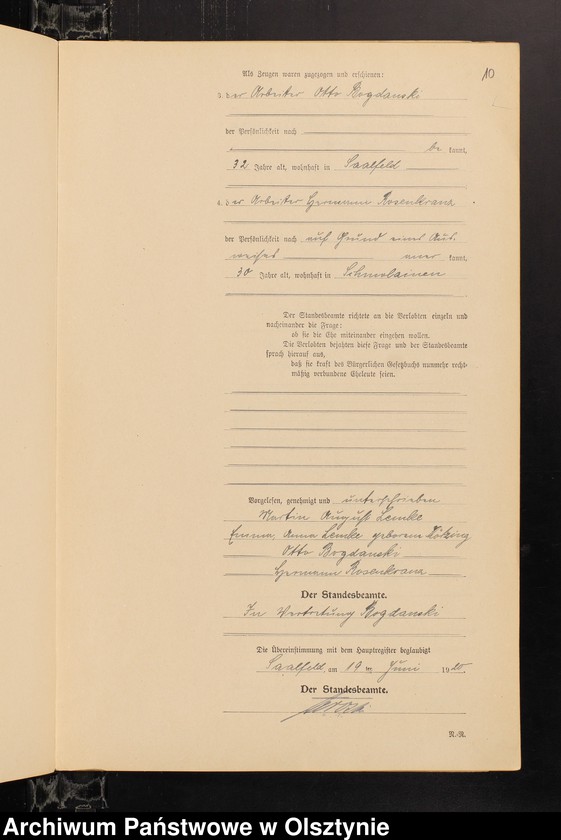 10
Als Zeugen waren zugezogen und erschienen:
3. der Arbeiter Otto Bogdanski
der Persönlichkeit nach
be kannt,
32 Jahre alt, wohnhaft in Saalfeld
4. der Arbeiter Hermann Rosenkranz
der Persönlichkeit nach auf Grund eines Aus
weises aner kannt,
30 Jahre alt, wohnhaft in Schmolainen
Der Standesbeamte richtete an die Verlobten einzeln und
nacheinander die Frage:
ob sie die Ehe miteinander eingehen wollen.
Die Verlobten bejahten diese Frage und der Standesbeamte
sprach hierauf aus,
daß sie kraft des Bürgerlichen Gesetzbuchs nunmehr recht-
mäßig verbundene Eheleute seien.
Vorgelesen, genehmigt und unterschrieben
Martin August Lemke
Emma Anna Lemke geborene
Otto Bogdanski
Hermann Rosenkranz
Der Standesbeamte.
In Vertretung Bogdanski
Die Übereinstimmung mit dem Hauptregister beglaubigt
Saalfeld, am 19 ten Juni 19
Der Standesbeamte.
N.-R.
Archiwum Państwowe w Olsztynie